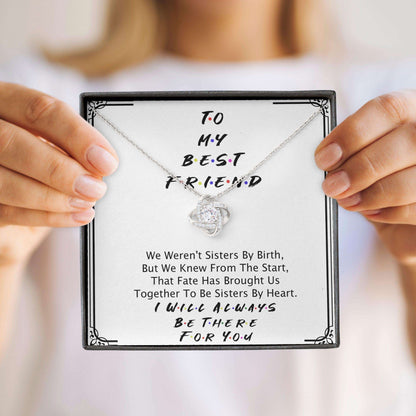 TO
MY
B•E•S•T
F•R•I•E•N•D
We Weren't Sisters By Birth,
But We Knew From The Start,
That Fate Has Brought Us
Together To Be Sisters By Heart.
I WILL ALWAYS
BE THERE
FOR YOU